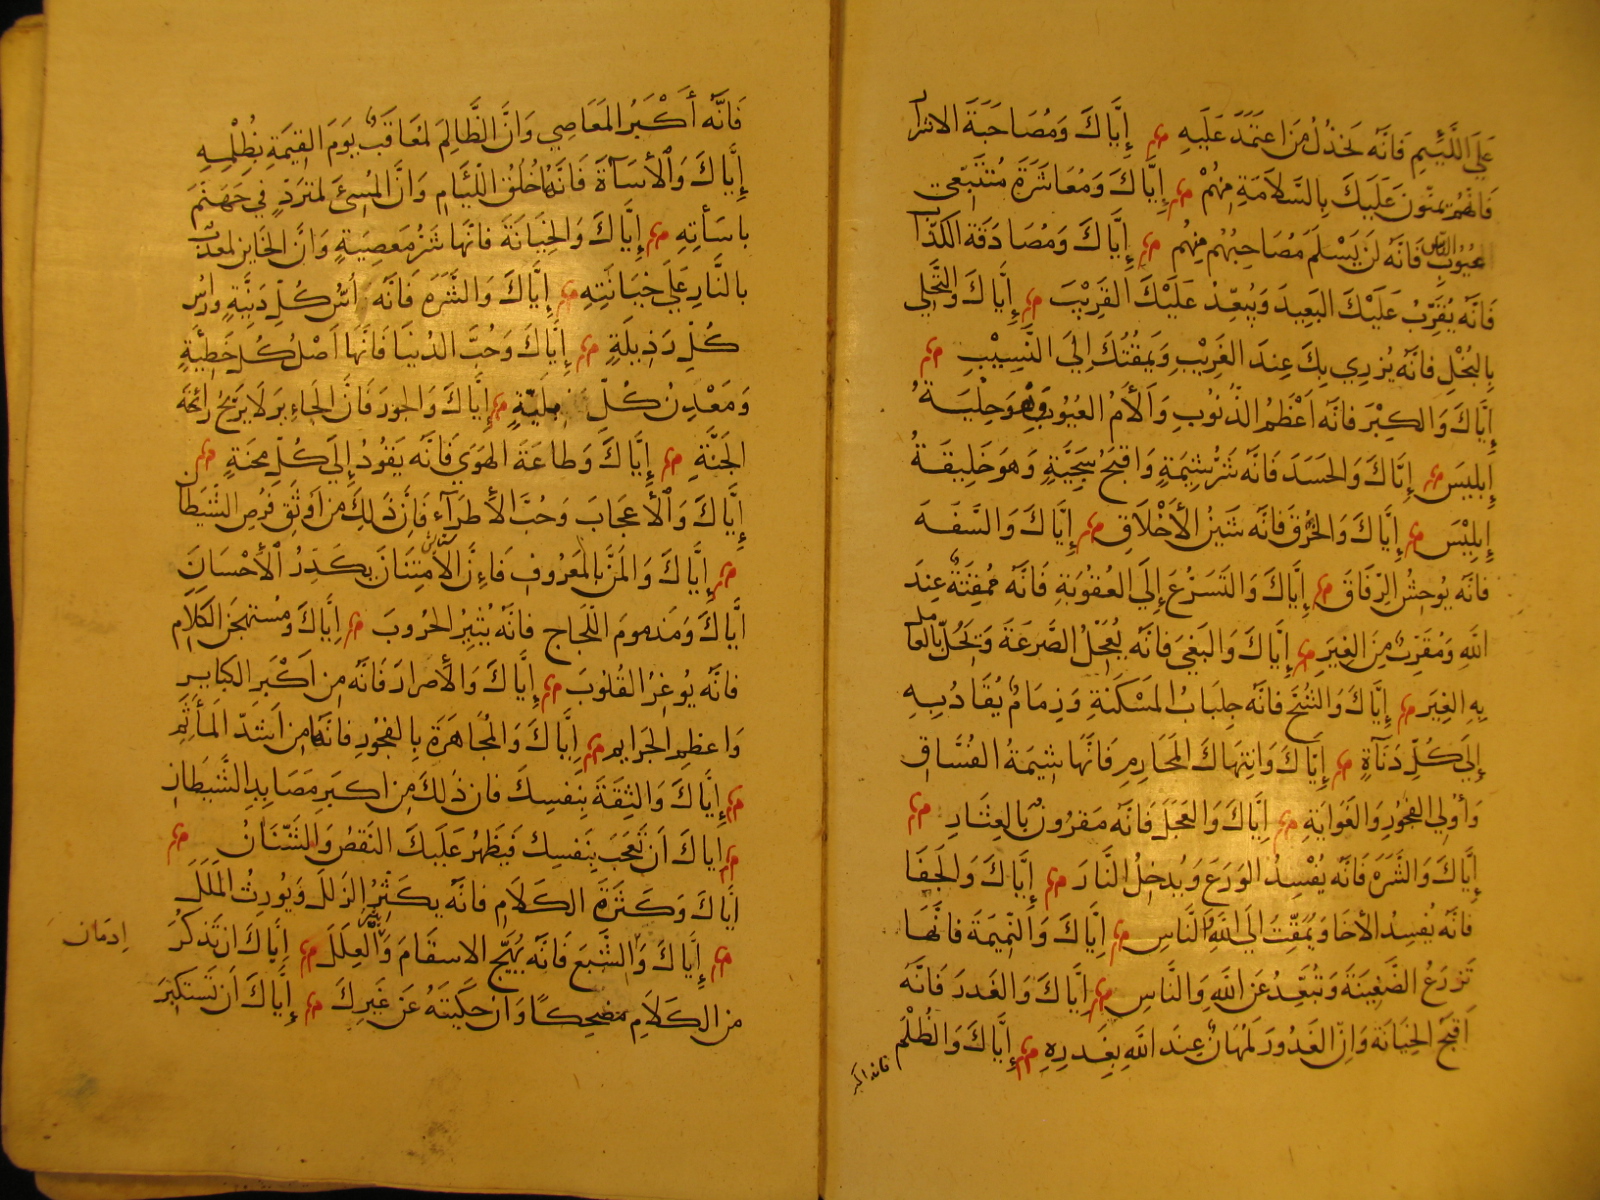 عَلَى اللَّئِيمِ فَاِنَّهُ يَخذُلُ مَنِ اعتَمَدَ عَلَيهِ إِيَّاكَ وَمُصَاحَبَةَ الاشرار
فَاِنَّهُم يَمنّونَ عَلَيكَ بِالسَّلاَمَةِ مِنْهُمْ إِيَّاكَ وَمُعَاشَرَةَ مُتَتَبِّعِي
عُيُوبِ النّاس فَاِنَّهُ لَن يَسْلَمَ مُصَاحِبُهُم مِنهُم إِيَّاكَ وَمُصَادَقَةَ الكَذّاب
فَاِنَّهُ يُقَرِّبُ عَلَيْكَ البَعِيدَ وَيُبَعِّدُ عَلَيْكَ القَرِيْبَ إِيَّاكَ وَالتَّحَلِّي
بِالبُخْلِ فَاِنَّهُ يُزرِي بِكَ عِندَ الغَرِيْبِ وَيَمقُتُكَ اِلَى النَّسِيْبِ
إِيَّاكَ وَالكِبْرَ فَاِنَّهُ اَعْظَمُ الذُّنُوبِ وَأَلأَمُ العُيُوبِ وَهُوَ حِلْيَةُ
إِبلِيسَ إِيَّاكَ وَالحَسَدَ فَاِنَّهُ شَرُّ شِيْمَةٍ وَاَقبَحُ سَجِيَّةٍ وَهُوَ خَلِيقَةُ
إِبلِيْسَ إِيَّاكَ وَالخُرْقَ فَاِنَّهُ شَيْنُ الأَخْلاَقِ إِيَّاكَ وَالسَّفَهَ
فَاِنَّهُ يُوحِشُ الرِّفَاقَ إِيَّاكَ وَالتَّسَرُّعَ إِلَى العُقُوبَةِ فَاِنَّهُ مُمقِتَةٌ عِندَ
اللّهِ وَمُقَرِّبٌ مِنَ الغِيَرِ إِيَّاكَ وَالبَغْيَ فَاِنَّهُ يُعَجِّلُ الصَّرعَةَ وَيُحِلُّ بِالعَامِلِ
بِهِ الغِيَرَ إِيَّاكَ وَالشُّحَّ فَاِنَّهُ جِلبَابُ المَسْكَنَةِ وَزِمَامٌ يُقَادُ بِهِ
إِلَى كُلِّ دَنَآةٍ إِيَّاكَ وَانتِهَاكَ المَحَارِمِ فَاِنَّهَا شِيمَةُ الفُسَّاقِ
وَأُولِي الفُجُورِ وَالغَوَايَةِ إِيَّاكَ وَالعَجَلَ فَاِنَّهُ مَقرُونٌ بِالعِثَارِ
إِيَّاكَ وَالشَّرَهَ فَاِنَّهُ يُفْسِدُ الوَرَعَ وَيُدخِلُ النَّارَ إِيَّاكَ وَالجَفَا
فَاِنَّهُ يُفسِدُ الأَخَا وَيُمَقِّتُ اِلَى اللّهِ وَالنَّاسِ إِيَّاكَ وَالنَّمِيمَةَ فَاِنَّهَا
تَزرَعُ الضَّغِينَةَ وَتُبَعِّدُ عَنِ اللّهِ وَالنَّاسِ إِيَّاكَ وَالغَدرَ فَاِنَّهُ
اَقبَحُ الخِيَانَةِ وَاِنَّ الغَدُورَ لَمُهَانٌ عِندَ اللّهِ بِغَدرِهِ إِيَّاكَ وَالظُّلْمَ
فانه اكبر
فَاِنَّهُ أَكْبَرُ المَعَاصِي وَاِنَّ الظَّالِمَ لَمُعَاقَبٌ يَومَ القِيمَةِ بِظُلْمِهِ
إِيَّاكَ وَالأَسَآءَةَ فَاِنَّهَا خُلُقُ اللِّئَامِ وَاِنَّ المُسِئَ لَمُتَرَدٍّ فِي جَهَنَّمَ
باسَأتِهِ إِيَّاكَ وَالخِيَانَةَ فَاِنَّهَا شَرُّ مَعصِيَةٍ وَاِنَّ الخَاينَ لَمُعَذّبٌ
بالنَّارِ عَلَى خِيَانَتِهِ إِيَّاكَ وَالشَّرَهَ فَاِنَّهُ اُسُّ كُلِّ دَنِيَّةٍ وَاُسُّ
كُلِّ رَذِيلَةٍ إِيَّاكَ وَحُبَّ الدُنيَا فَاِنَّهَا اَصْلُ كُلِّ خَطِيْئَةٍ
وَمَعْدِنُ كُلِّ بَلِيَّةٍ إِيَّاكَ وَالجورَ فَاِنَّ الجَاءِرَ لاَ يَرِيْحُ رَائِحَةَ
الجَنَّةِ إِيَّاكَ وَطَاعَةَ الهَوَي فَاِنَّهُ يَقُودُ إِلَى كُلِّ مِحنَةٍ
إِيَّاكَ وَالأعجَابَ وَحُبَّ الأَطرَآءِ فَاِنَّ ذَلِكَ مِن اَوثَقِ فُرَصِ الشَّيطَان
إِيَّاكَ وَالمَنَّ بِالمَعرُوفِ فَاءِنَّ الاَمتِنَانَ يُكَدِّرُ الأَحْسَانَ
إِيَّاكَ وَمَذمومَ اللَّجَاجِ فَاِنَّهُ يُثِيرُ الحُروبَ إِيَّاكَ وَمُستَهجَنَ الكَلاَمِ
فَاِنَّهُ يُوغِرُ القُلوبَ إِيَّاكَ وَالأَصرَارَ فَاِنَّهُ مِن اَكبَرِ الكَبَايِر
وَاَعظمِ الجَرَايم إِيَّاكَ وَالمُجَاهَرَةَ بِالفُجُورِ فَاِنَّهَا مِن اَشَدِّ المَأثِمِ
إِيَّاكَ وَالثِّقَةَ بِنَفسِكَ فَاِنَّ ذَلكَ مِن اكبَرِ مَصَايِدِ الشَّيطَانِ
اِياكَ اَن تُعجَبَ بِنَفسِكَ فَيَظهَرَ عَلَيكَ النَّقصُ وَالشَّنَانُ
إِيَّاكَ وَكَثرَةَ الكَلاَمِ فَاِنَّهُ يُكَثِّرُ الزَّلَلَ وَيُورِثُ المَلَلَ
إِيَّاكَ وَالشَّبَعَ فَاِنَّهُ يُهَيِّجُ الاسقَامَ وَالعِلَلَ إِيَّاكَ اَن تَذكُرَ
اِدمَان
مِنَ الكَلاَمِ مُضحِكًا وَاِن حَكَيتَهُ عَن غَيرِكَ إِيَّاكَ اَن تَستَكبِرَ